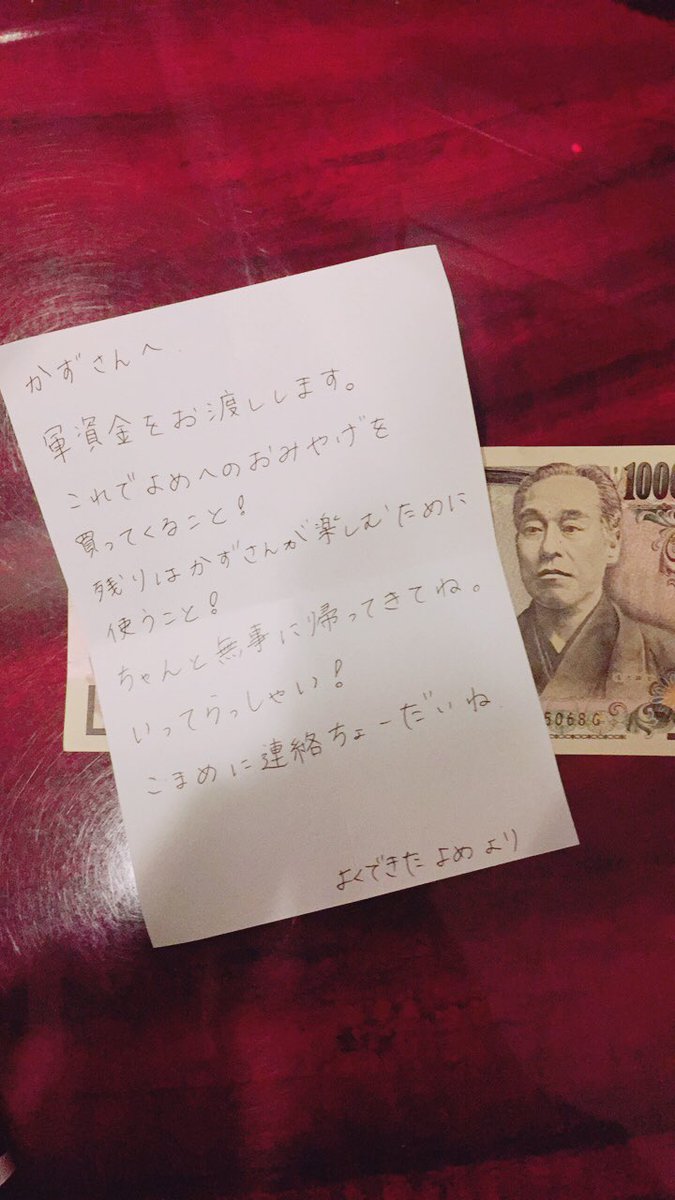 かずさんへ
軍資金をお渡しします。
これでよめへのおみやげを
買ってくること!
残りはかずさんが楽しむために
使うこと!
ちゃんと無事に帰ってきてね。
いってらっしゃい!
こまめに連絡ちょーだいね
よくできた よめ より
1000
5068G